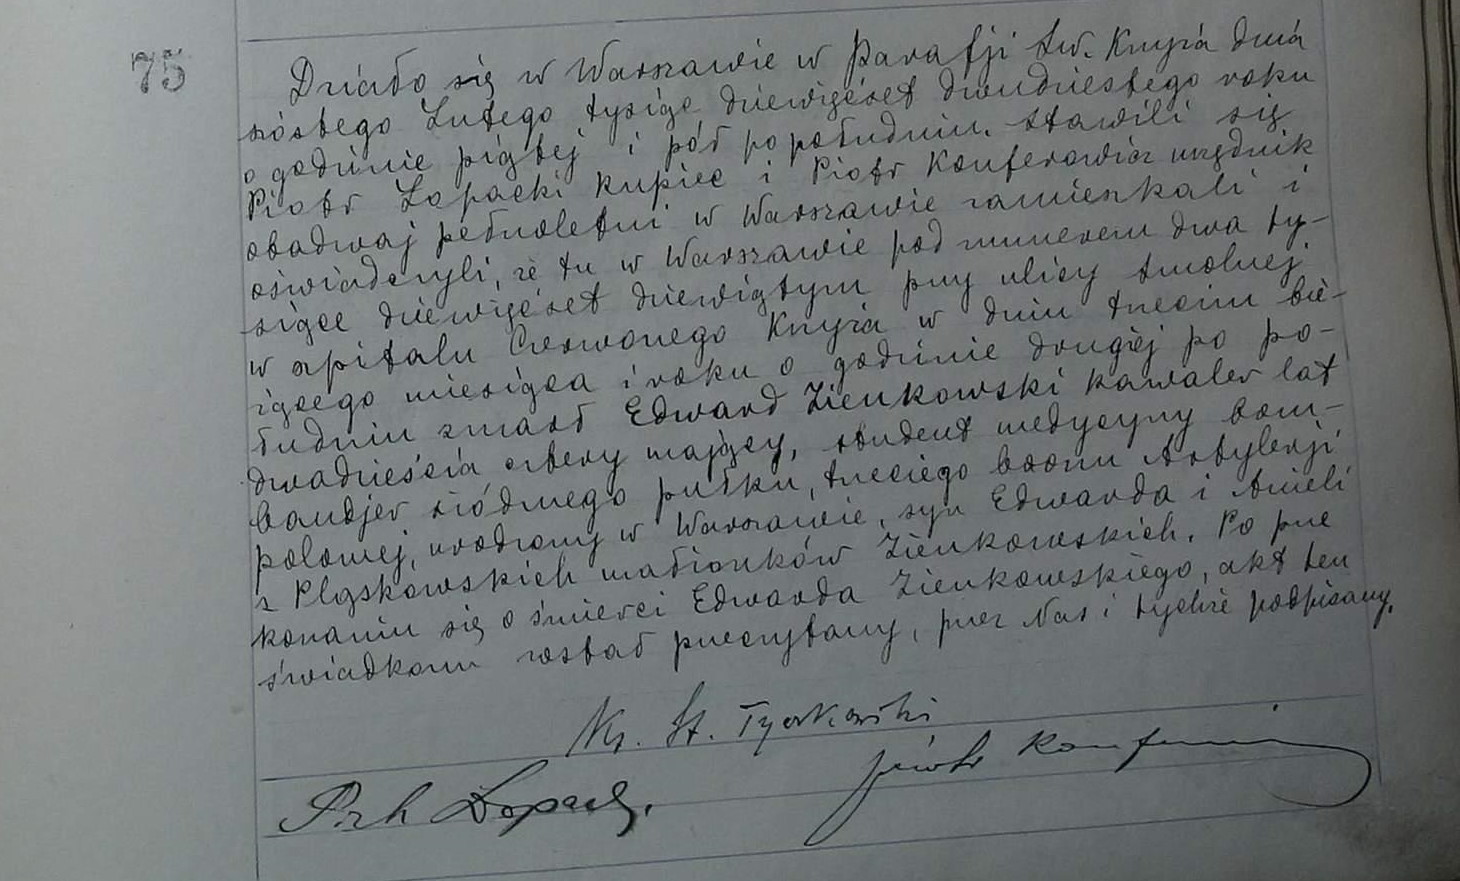 75
Działo się w Warszawie w Parafji św. Krzyża dnia
szóstego Lutego tysiąc dziewięćset dwudziestego roku
o godzinie piątej i pół po południu. Stawili się
Piotr Łopacki kupiec i Piotr Konferowicz urzędnik
obadwaj pełnoletni w Warszawie zamieszkali i
oświadczyli, że tu w Warszawie pod numerem dwa ty-
siące dziewięćset dziewiątym przy ulicy Smolnej
w szpitalu Czerwonego Krzyża w dniu trzecim bie-
żącego miesiąca i roku o godzinie drugiej po po-
łudniu zmarł Edward Zienkowski kawaler lat
dwadzieścia cztery mający, student medycyny bom-
bardjer siódmego pułku, trzeciego baonu Artylerji
polowej, urodzony w Warszawie, syn Edwarda i Anieli
z Pląskowskich małżonków Zienkowskich. Po prze
konaniu się o śmierci Edwarda Zienkowskiego, akt ten
świadkom został przeczytany, przez Nas i tychże podpisany.
St.
Łopacki
Piotr